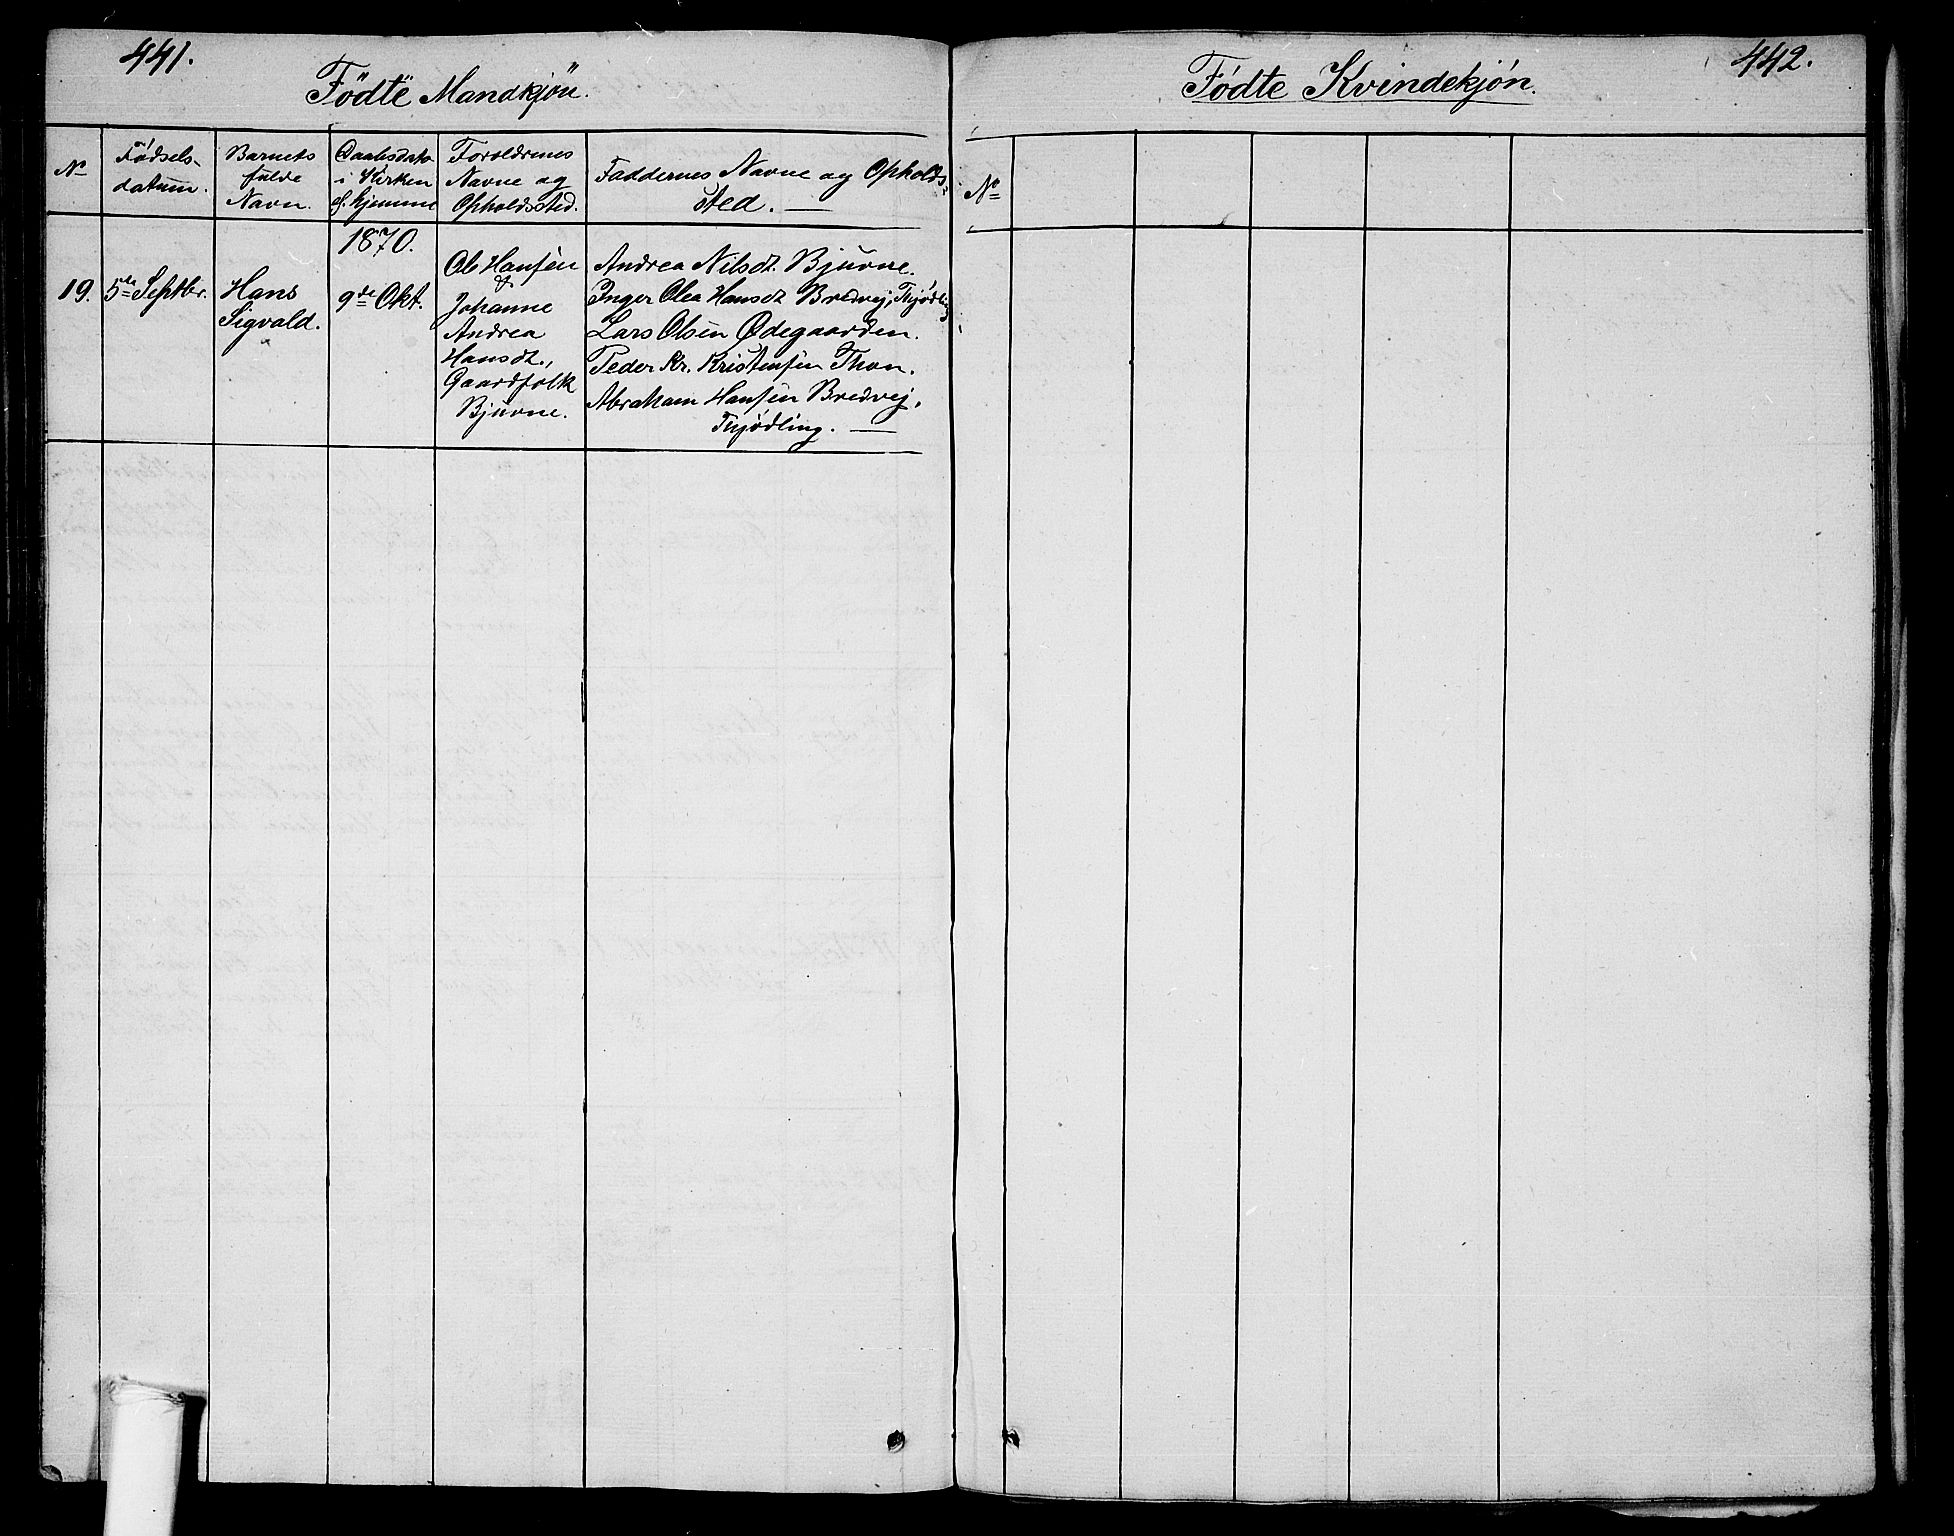 441.
Födte Mandkjön.
No
Fødsels-
datum.
Barnets
fulde
Navn.
Daabsdato
i Kirken
el. hjemme
Forældrenes
Navne og
Opholdssted.
Faddernes Navne og Opholds-
sted. —
1870.
19.
5te Septbr.
Hans
Sigvald.
9de Okt.
Ole Hansen
&
Johanne
Andrea
Hansdt.,
Gaardfolk
Bjurne.
Andrea Nilsdt. Bjurne.
Inger Olea Hansdt Bredvej, Thjødling
Lars Olsen Ødegaarden.
Peder Kr. Kristensen Thon.
Abraham Hansen Bredvej,
Thjødling. —
442.
Fødte Kvindekjón.
No